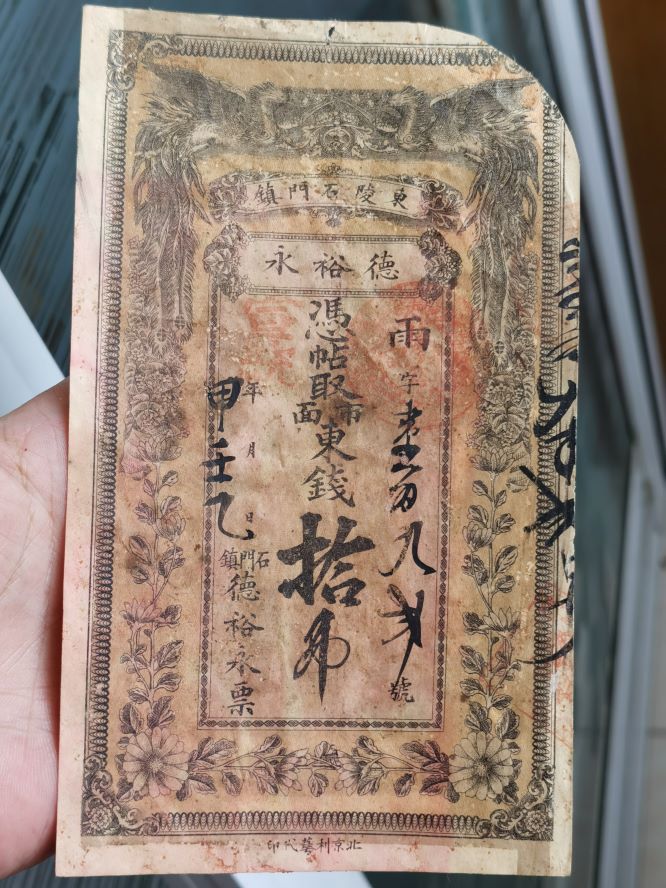 東陵石門鎮
德裕永
雨字 九 號
憑帖取市面東錢拾吊
甲年壬月乙日
石門鎮德裕永票
北京利藝代印